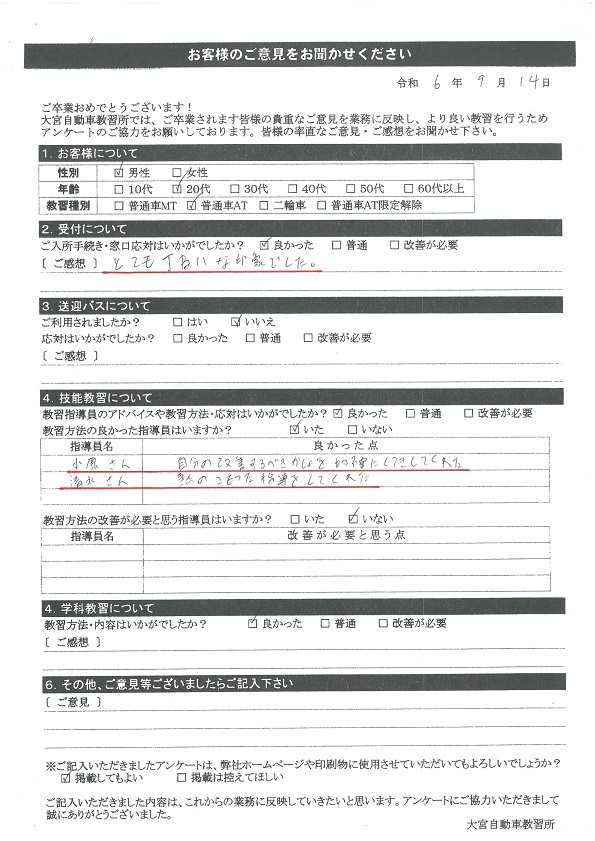 お客様のご意見をお聞かせください
令和 6 年 9 月 14 日
ご卒業おめでとうございます！
大宮自動車教習所では、ご卒業されます皆様の貴重なご意見を業務に反映し、より良い教習を行うため
アンケートのご協力をお願いしております。皆様の率直なご意見・ご感想をお聞かせ下さい。
1. お客様について
性別 ☑ 男性 □ 女性
年齢 □ 10代 ☑ 20代 □ 30代 □ 40代 □ 50代 □ 60代以上
教習種別 □ 普通車MT ☑ 普通車AT □ 二輪車 □ 普通車AT限定解除
2. 受付について
ご入所手続き・窓口応対はいかがでしたか？ ☑ 良かった □ 普通 □ 改善が必要
〔 ご感想 〕 とても丁ねいな印象でした。
3. 送迎バスについて
ご利用されましたか？ □ はい ☑ いいえ
応対はいかがでしたか？ □ 良かった □ 普通 □ 改善が必要
〔 ご感想 〕
4. 技能教習について
教習指導員のアドバイスや教習方法・応対はいかがでしたか？ ☑ 良かった □ 普通 □ 改善が必要
教習方法の良かった指導員はいますか？ ☑ いた □ いない
指導員名 良かった点
小原さん 自分の改善するべきかしょを的確にしてきしてくれた
清水さん 熱のこもった指導をしてくれた
教習方法の改善が必要と思う指導員はいますか？ □ いた ☑ いない
指導員名 改善が必要と思う点
4. 学科教習について
教習方法・内容はいかがでしたか？ ☑ 良かった □ 普通 □ 改善が必要
〔 ご感想 〕
6. その他、ご意見等ございましたらご記入下さい
〔 ご意見 〕
※ご記入いただきましたアンケートは、弊社ホームページや印刷物に使用させていただいてもよろしいでしょうか？
☑ 掲載してもよい □ 掲載は控えてほしい
ご記入いただきました内容は、これからの業務に反映していきたいと思います。アンケートにご協力いただきまして
誠にありがとうございました。
大宮自動車教習所